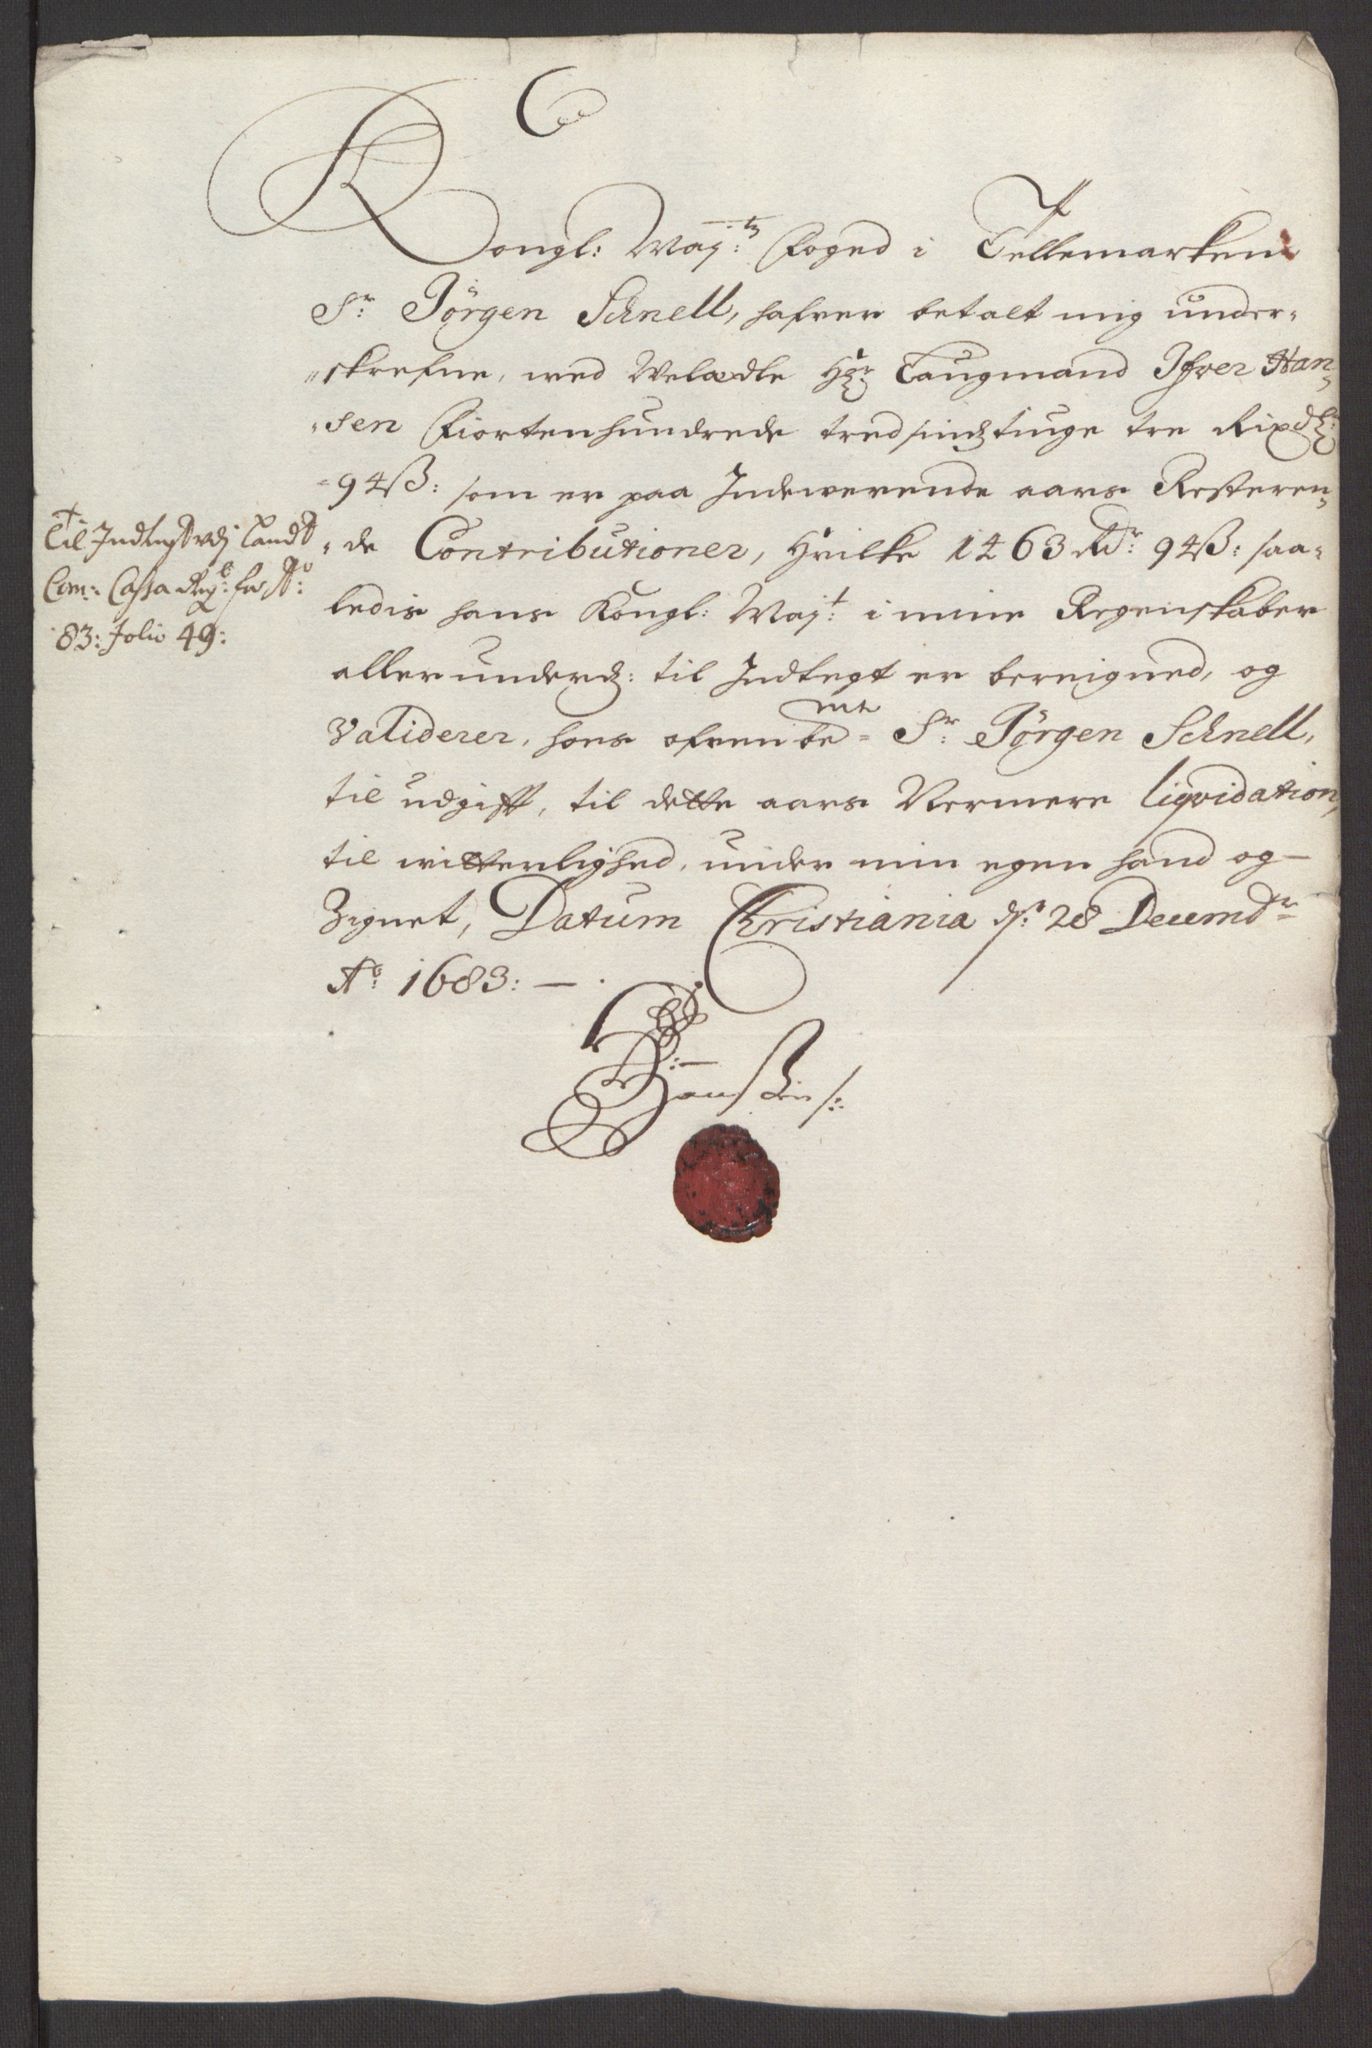 Kongl: May:tz Foged i Tellemarken
Sr: Jörgen Schnell, hafver betalt mig under-
skrefne, med Velædle Hr: Laugmand Ifver Han-
sen Fiortenhundrede tredsindztiuge tre Rixdlr:
94ß: som er paa Indeværende aars Resteren-
de Contributioner, Hvilke 1463 Rdr: 94ß: saa-
ledis hans Kongl: May:t i mine Regenskaber
allerunderd: til Indtegt er bereigned, og
Validerer, hos ofvenbe=mte Sr: Jörgen Schnell,
til udgifft, til dette aars Nermere liqvidation,
til vitterlighed, under min egen Hand og
Zignet, Datum Christiania ds: 28 Decembr
Ao: 1683:
Til Indtegt vdj Landt
Com: Cassa Reg: for Ao:
83: Folio 49: